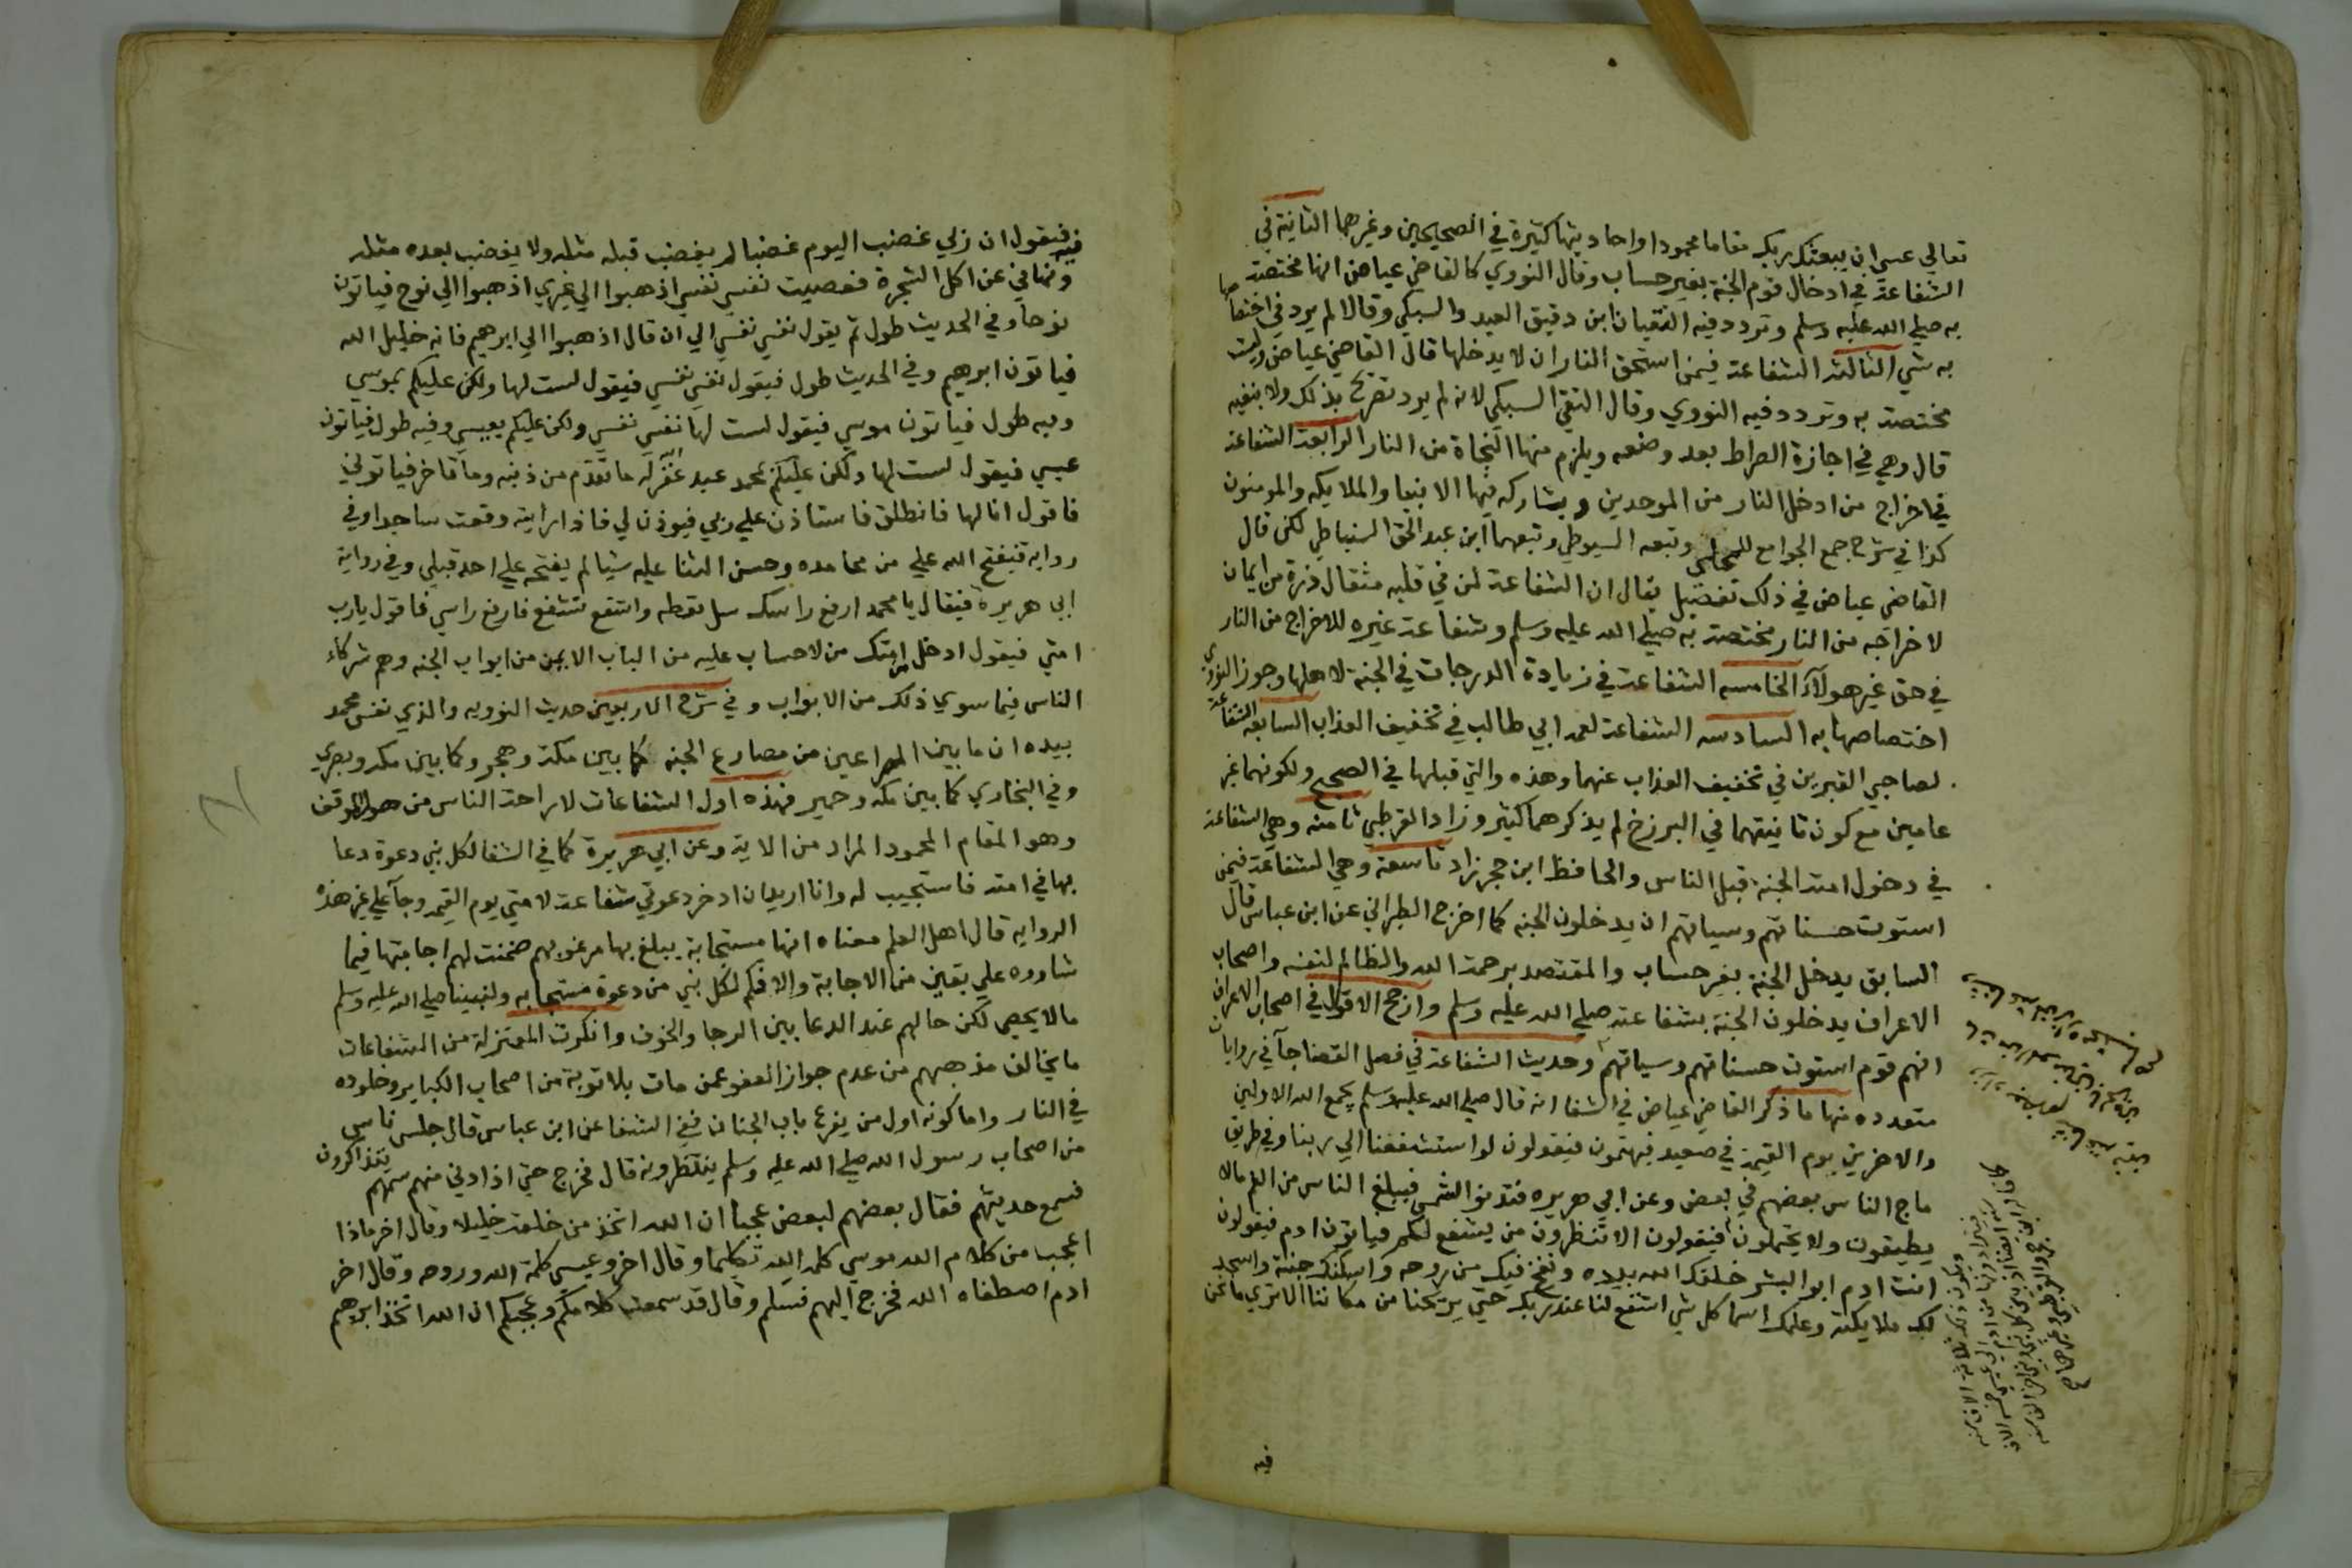 تعالي عسي ان يبعثك ربك مقاما محمودا واحاديثها كثيرة في الصحيحين وغيرهما الثانية في
الشفاعة في ادخال قوم الجنة بغير حساب وقال النووي كالقاضي عياض انها مختصة
به صلي الله عليه وسلم وتردد فيه التقيان ابن دقيق العيد والسبكي وقالا لم يرد في اختصاصها
به شي الثالثة الشفاعة فيمن استحق النار ان لا يدخلها قال القاضي عياض وليست
مختصة به وتردد فيه النووي وقال التقي السبكي لانه لم يرد تصريح بذلك ولا بنفيه
قال وهي في اجازة الصراط بعد وضعه ويلزم منها النجاة من النار الرابعة الشفاعة
في اخراج من ادخل النار من الموحدين ويشاركه فيها الانبيا والملايكه والمومنون
كذا في شرح جمع الجوامع للمحلي وتبعه السيوطي وتبعهما ابن عبد الحق السنباطي لكن قال
القاضي عياض في ذلك تفصيل يقال ان الشفاعة لمن في قلبه مثقال ذرة من ايمان
لاخراجه من النار مختصة به صلي الله عليه وسلم وشفاعة غيره للاخراج من النار
في حق غير هولآء الخامسه الشفاعة في زيادة الدرجات في الجنة لاهلها وجوز النووي
اختصاصها به السادسه الشفاعة لعمه ابي طالب في تخفيف العذاب السابعه الشفاعة
لصاحبي القبرين في تخفيف العذاب عنهما وهذه والتي قبلها في الصحيح ولكونهما غير
عامين مع كون ثانيتهما في البرزخ لم يذكرهما كثير وزاد القرطبي ثامنه وهي الشفاعة
في دخول امته الجنة قبل الناس والحافظ ابن حجر زاد تاسعة وهي الشفاعة فيمن
استوت حسناتهم وسياتهم ان يدخلون الجنه كما اخرج الطبراني عن ابن عباس قال
السابق يدخل الجنة بغير حساب والمقتصد برحمة الله والظالم لنفسه واصحاب
الاعراف يدخلون الجنة بشفاعته صلي الله عليه وسلم وارجح الاقوال في اصحاب الاعراف
انهم قوم استوت حسناتهم وسياتهم وحديث الشفاعة في فصل القضا جآ في روايات
متعدده منها ما ذكر القاضي عياض في الشفا انه قال صلي الله عليه وسلم يجمع الله الاولين
والاخرين يوم القيمة في صعيد فيهتمون فيقولون لو استشفعنا الي ربنا وفي طريق
ماج الناس بعضهم في بعض وعن ابي هريره فتدنو الشمس فيبلغ الناس من الغم مالا
يطيقون ولا يحتملون فيقولون الا تنظرون من يشفع لكم فياتون ادم فيقولون
انت ادم ابو البشر خلقك الله بيده ونفخ فيك من روحه واسكنك جنته واسجد
لك ملايكته وعلمك اسما كل شي اشفع لنا عند ربك حتي يريحنا من مكاننا الا تري ما نحن
فيه
فيه فيقول ان ربي غضب اليوم غضبا لم يغضب قبله مثله ولا يغضب بعده مثله
ونهاني عن اكل الشجرة فعصيت نفسي نفسي اذهبوا الي غيري اذهبوا الي نوح فياتون
نوحا وفي الحديث طول ثم يقول نفسي نفسي الي ان قال اذهبوا الي ابرهيم فانه خليل الله
فياتون ابرهيم وفي الحديث طول فيقول نفسي نفسي فيقول لست لها ولكن عليكم بموسي
وفيه طول فياتون موسي فيقول لست لها نفسي نفسي ولكن عليكم بعيسي وفيه طول فياتون
عيسي فيقول لست لها ولكن عليكم بمحمد عبد غفر الله له ما تقدم من ذنبه وما تاخر فياتوني
فاقول انا لها فانطلق فاستاذن علي ربي فيوذن لي فاذا رايته وقعت ساجدا وفي
روايه فيفتح الله علي من محامده وحسن الثنا عليه شيا لم يفتحه علي احد قبلي وفي رواية
ابي هريرة فيقال يا محمد ارفع راسك سل تعطه واشفع تشفع فارفع راسي فاقول يارب
امتي فيقول ادخل من امتك من لا حساب عليه من الباب الايمن من ابواب الجنه وهم شركاء
الناس فيما سوي ذلك من الابواب وفي شرح الاربعين حديث النوويه والذي نفس محمد
بيده ان ما بين المصراعين من مصارع الجنه كما بين مكة وهجر وكما بين مكه وبصري
وفي البخاري كما بين مكه وحمير فهذه اول الشفاعات لاراحة الناس من هول الموقف
وهو المقام المحمود المراد من الاية وعن ابي هريرة كما في الشفا لكل نبي دعوة دعا
بها في امته فاستجيب له وانا اريد ان ادخر دعوتي شفاعة لامتي يوم القيمه وجآ علي غير هذه
الروايه قال اهل العلم معناه انها مستجابة يبلغ بها مرغوبهم ضمنت لهم اجابتها فيما
شاوده علي يقين من الاجابة والا فكم لكل نبي من دعوة مستجابه ولنبينا صلي الله عليه وسلم
مالا يحصي لكن حالهم عند الدعا بين الرجا والخوف وانكرت المعتزلة من الشفاعات
ما يخالف مذهبهم من عدم جواز العفو عمن مات بلا توبة من اصحاب الكباير وخلوده
في النار واما كونه اول من يقرع باب الجنان ففي الشفا عن ابن عباس قال جلس ناس
من اصحاب رسول الله صلي الله عليه وسلم ينتظرونه قال فخرج حتي اذا دني منهم سمعهم يتذاكرون
فسمع حديثهم فقال بعضهم لبعض عجبا ان الله اتخذ من خلقه خليلا وقال اخر ماذا
اعجب من كلام الله موسي كلمه الله تكليما وقال اخر وعيسي كلمة الله وروحه وقال اخر
ادم اصطفاه الله فخرج اليهم فسلم وقال قد سمعت كلامكم وعجبكم ان الله اتخذ ابرهيم